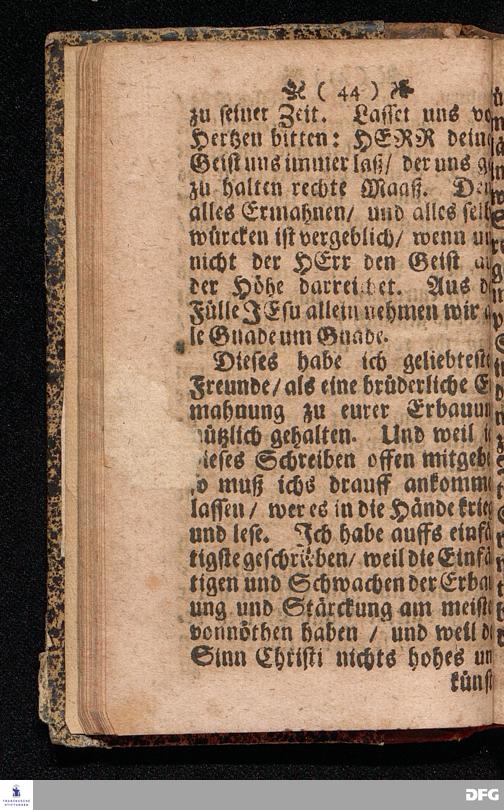 ( 44 )
zu seiner Zeit. Lasset uns
Hertzen bitten: HERR
Geist uns immer laß/ der uns
zu halten rechte Maaß.
alles Ermahnen/ und alles
würcken ist vergeblich/ wenn
nicht der HErr den Geist
der Höhe darreichet. Aus
Fülle JEsu allein nehmen wir
le Gnade um Gnade.
Dieses habe ich
Freunde/ als eine brüderliche
mahnung zu eurer
nützlich gehalten. Und weil
dieses Schreiben offen
so muß ichs drauff
lassen/ wer es in die Hände
und lese. Ich habe auffs
tigste geschrieben/ weil die
tigen und Schwachen der
ung und Stärckung am
vonnöthen haben / und weil
Sinn Christi nichts hohes

FRANCKESCHE
STIFTUNGEN
DFG